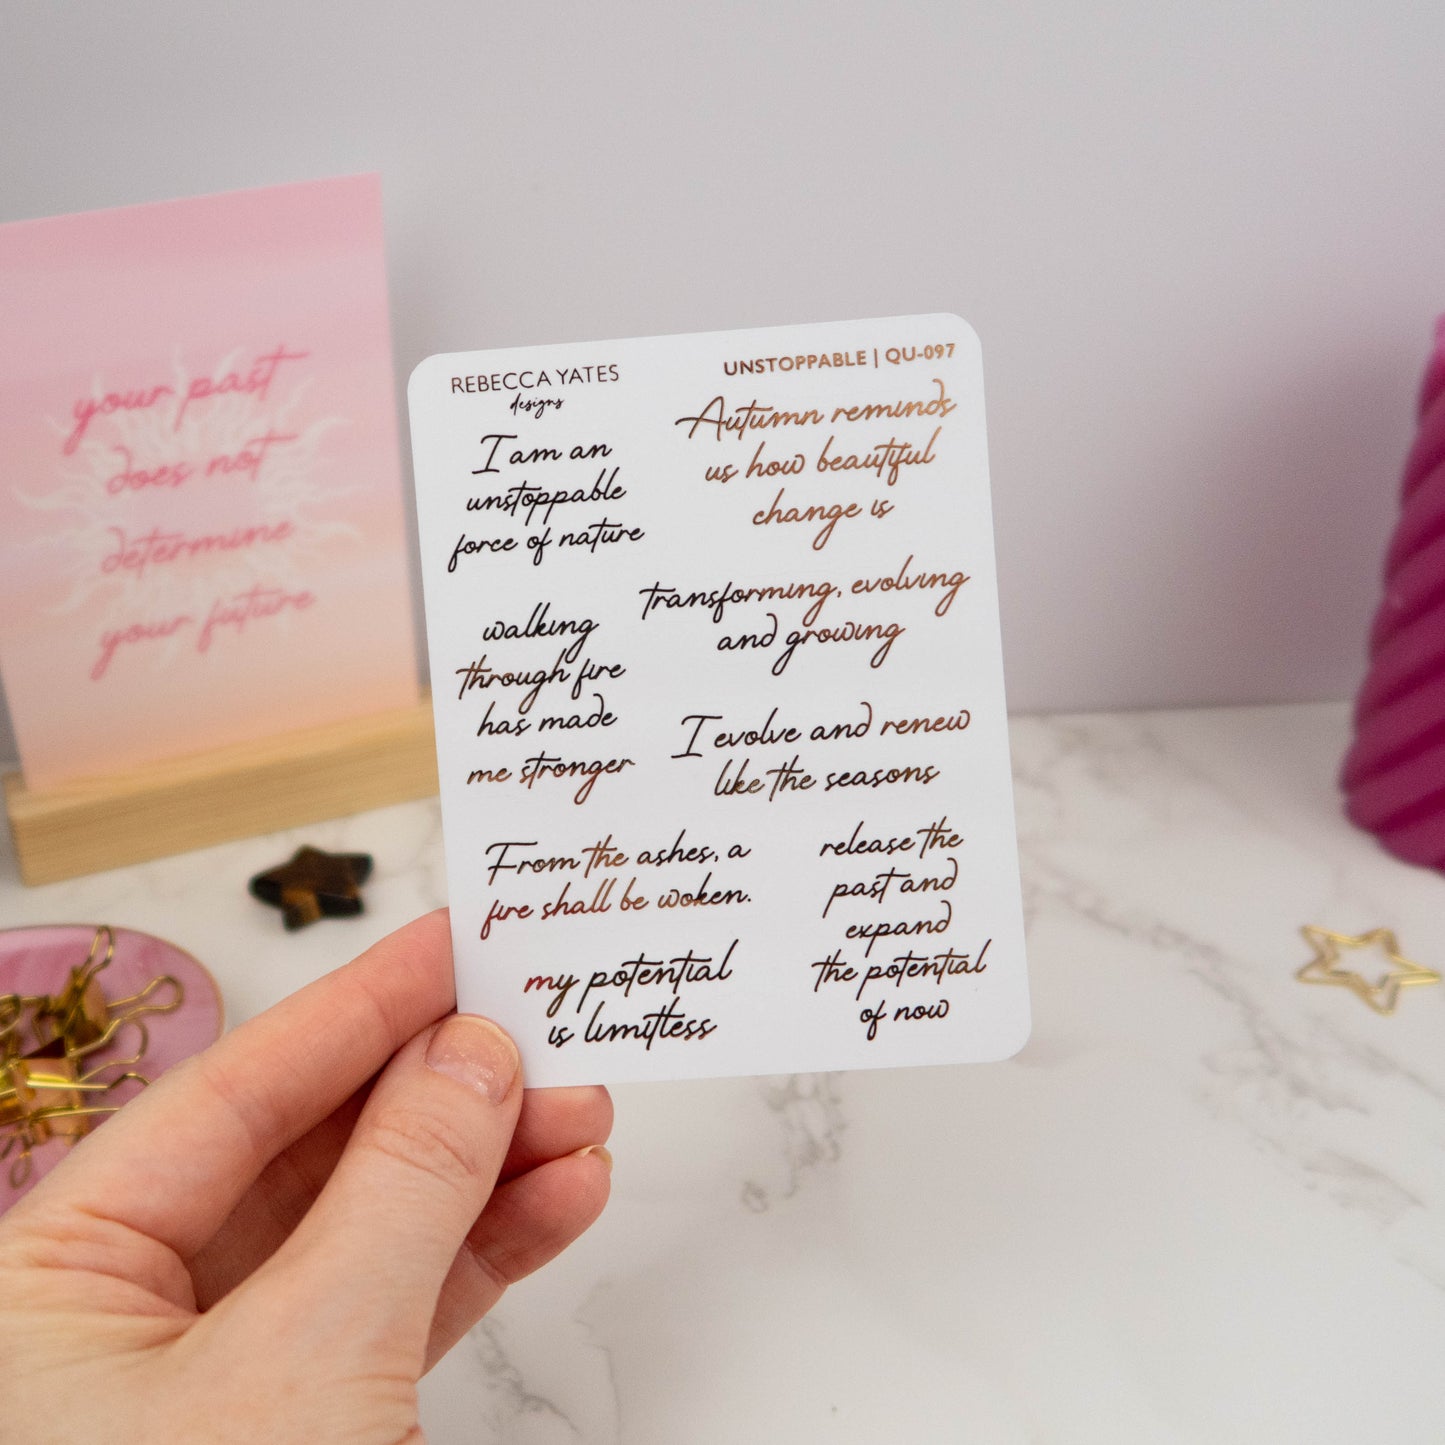 REBECCA YATES
designs
UNSTOPPABLE | QU-097
I am an
unstoppable
force of nature
Autumn reminds
us how beautiful
change is
walking
through fire
has made
me stronger
transforming, evolving
and growing
I evolve and renew
like the seasons
From the ashes, a
fire shall be woken.
release the
past and
expand
the potential
of now
my potential
is limitless
your past
does not
determine
your future